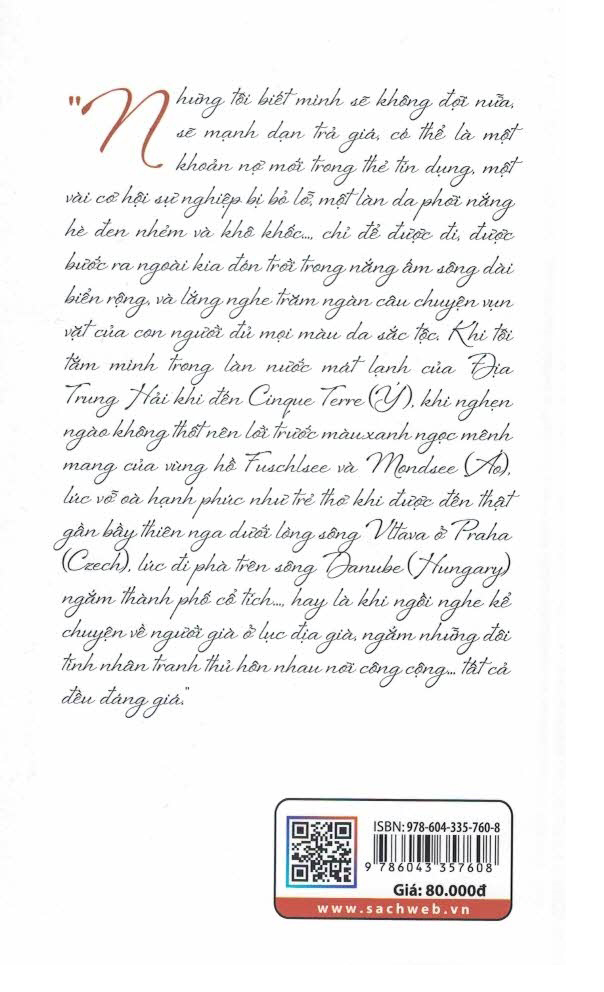 "Nhưng tôi biết mình sẽ không đợi nữa,
sẽ mạnh dạn trả giá, có thể là một
khoản nợ mới trong thẻ tín dụng, một
vài cơ hội sự nghiệp bị bỏ lỡ, một làn da phơi nắng
hè đen nhẻm và khô khốc..., chỉ để được đi, được
bước ra ngoài kia đón trời trong nắng ấm sông dài
biển rộng, và lắng nghe trăm ngàn câu chuyện vụn
vặt của con người đủ mọi màu da sắc tộc. Khi tôi
tắm mình trong làn nước mát lạnh của Địa
Trung Hải khi đến Cinque Terre (Ý), khi nghẹn
ngào không thốt nên lời trước màu xanh ngọc mênh
mang của vùng hồ Fuschlsee và Mondsee (Áo),
lúc vỡ oà hạnh phúc như trẻ thơ khi được đến thật
gần bầy thiên nga dưới lòng sông Vltava ở Praha
(Czech), lúc đi phà trên sông Danube (Hungary)
ngắm thành phố cổ tích..., hay là khi ngồi nghe kể
chuyện về người già ở lục địa già, ngắm những đôi
tình nhân tranh thủ hôn nhau nơi công cộng... tất cả
đều đáng giá."
ISBN: 978-604-335-760-8
9 786043 357608
Giá: 80.000đ
www.sachweb.vn